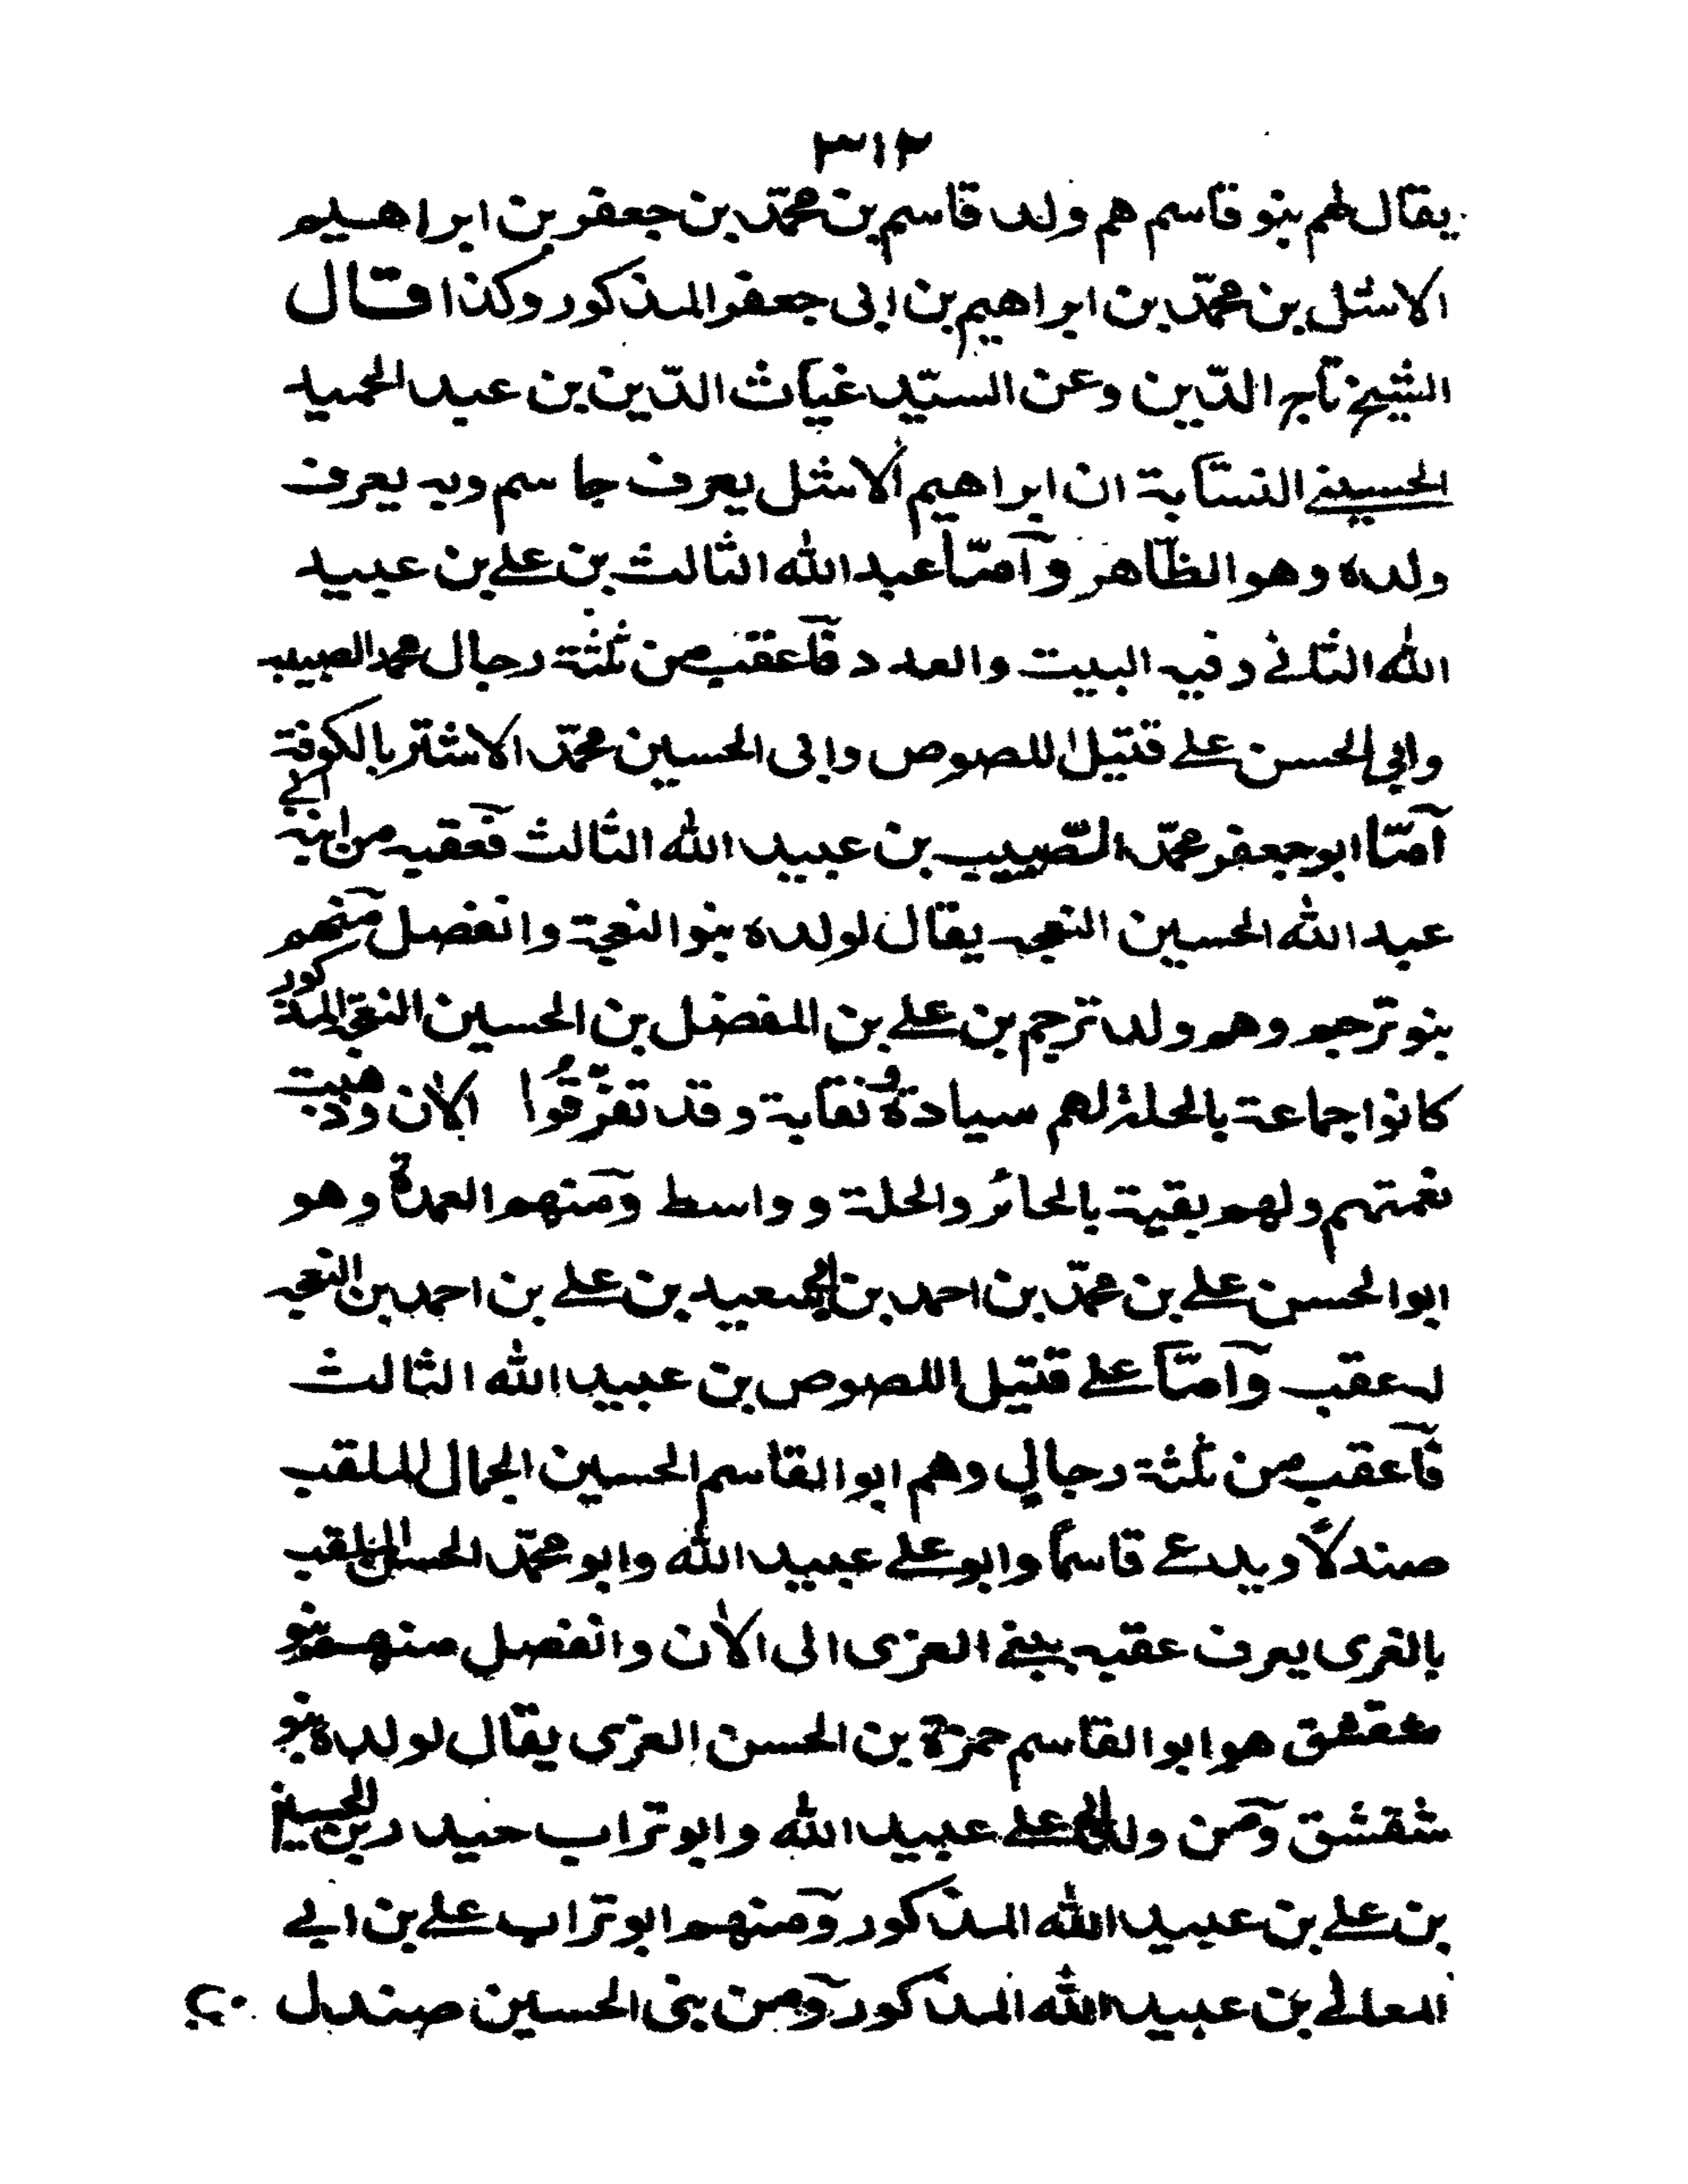 ٣١٢
يقال لهم بنو قاسم هم ولد قاسم بن محمّد بن جعفر بن ابراهيم
الاشل بن محمّد بن ابراهيم بن ابى جعفر المذكور وكذا قال
الشيخ تاج الدّين وعن السيّد غياث الدّين بن عبد الحميد
الحسينے النسّابة ان ابراهيم الاشل يعرف جا سم وبه يعرف
ولده وهو الظّاهر وآمّا عبد الله الثالث بن علے بن عبيد
الله الثانے وفيه البيت والعدد فآعقب من ثلثة رجال محمد الصبيب
وابي الحسن علے قتيل اللصوص وابى الحسين محمّد الاشتر بالكوفة
آمّا ابو جعفر محمّد الصّبيب بن عبيد الله الثالث فعقبه من ابنه الے
عبد الله الحسين النعجه يقال لولده بنو النعجة وانفصل منهم
بنو ترجم وهم ولد ترجم بن علے بن المفضل بن الحسين النعجه المذكور
كانوا جماعة بالحلة لهم سيادة و نقابة وقد تفرّقُوا الان وذهبت
نعمتهم ولهم بقية بالحائر والحلة و واسط ومنهم العمدة وهو
ابو الحسن علے بن محمّد بن احمد بن ابى سعيد بن علے بن احمد بن النعجه
له عقب وآمّا علے قتيل اللصوص بن عبيد الله الثالث
فآعقب من ثلثة رجال وهم ابو القاسم الحسين الجمال الملقب
صندلًا ويدعے قاسمًا وابو علے عبيد الله وابو محمّد الحسن الملقب
بالغرى يعرف عقبه ببنے العزى الى الان وانفصل منهم بنو
شقشق هو ابو القاسم حمزة بن الحسن العزى يقال لولده بنو
شقشق ومن ولد ابى علے عبيد الله وابو تراب حيدر بن الحسين
بن علے بن عبيد الله المذكور ومنهم ابو تراب علے بن ابے
المعالے بن عبيد الله المذكور ومن بنى الحسين صندل